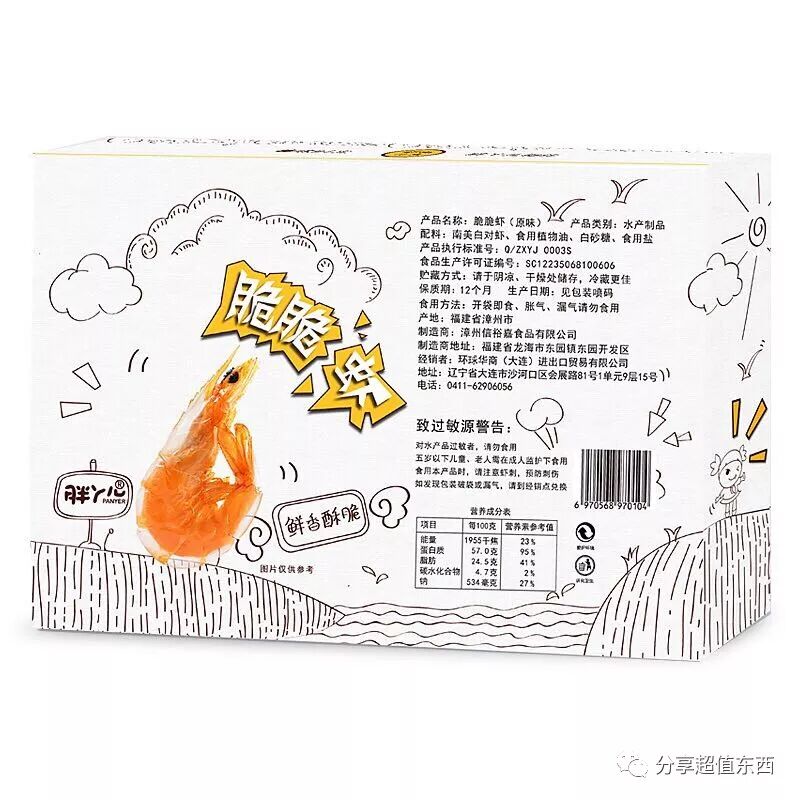 产品名称：脆脆虾（原味） 产品类别：水产制品
配料：南美白对虾、食用植物油、白砂糖、食用盐
产品执行标准号：Q/ZXYJ 0003S
食品生产许可证编号：SC12235068100606
贮藏方式：请于阴凉、干燥处储存，冷藏更佳
保质期：12个月 生产日期：见包装喷码
食用方法：开袋即食、胀气、漏气请勿食用
产地：福建省漳州市
制造商：漳州信裕嘉食品有限公司
制造商地址：福建省龙海市东园镇东园开发区
经销者：环球华商（大连）进出口贸易有限公司
地址：辽宁省大连市沙河口区会展路81号1单元9层15号
电话：0411-62906056
脆脆虾
致过敏源警告：
对水产品过敏者，请勿食用
五岁以下儿童、老人需在成人监护下食用
食用本产品时，请注意虾刺，预防刺伤
如发现包装破袋或漏气，请到经销点兑换
6 970568 970104
胖丫儿®
PANYER
鲜香酥脆
图片仅供参考
营养成分表
项目 每100克 营养素参考值
能量 1955千焦 23%
蛋白质 57.0克 95%
脂肪 24.5克 41%
碳水化合物 4.7克 2%
钠 534毫克 27%
分享超值东西